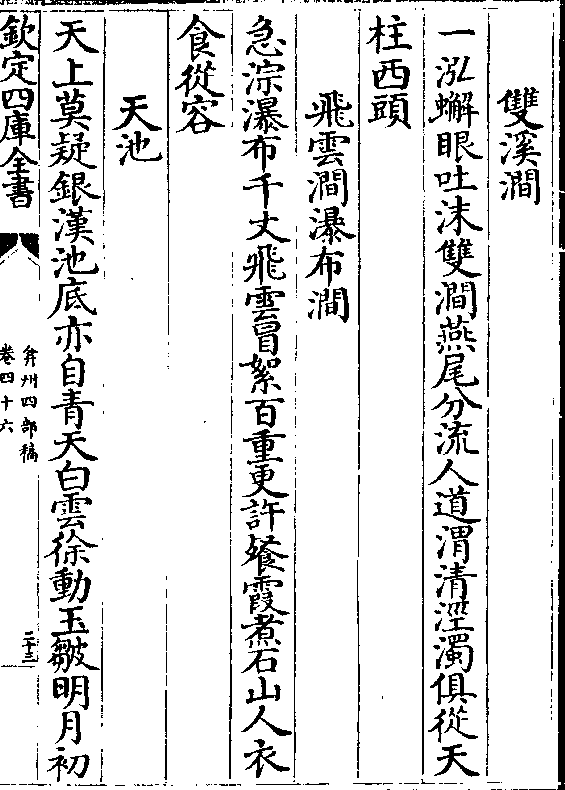 雙溪澗
一泓蠏眼吐沫雙澗燕尾分流人道渭清涇濁俱從天
柱西頭
飛雲澗瀑布澗
急淙瀑布千丈飛雲冒絮百重更許餐霞煮石山人衣
食從容
天池
天上莫疑銀漢池底亦自青天白雲徐動玉皺明月初
欽定四庫全書
弇州四部稿
卷四十六
二十三